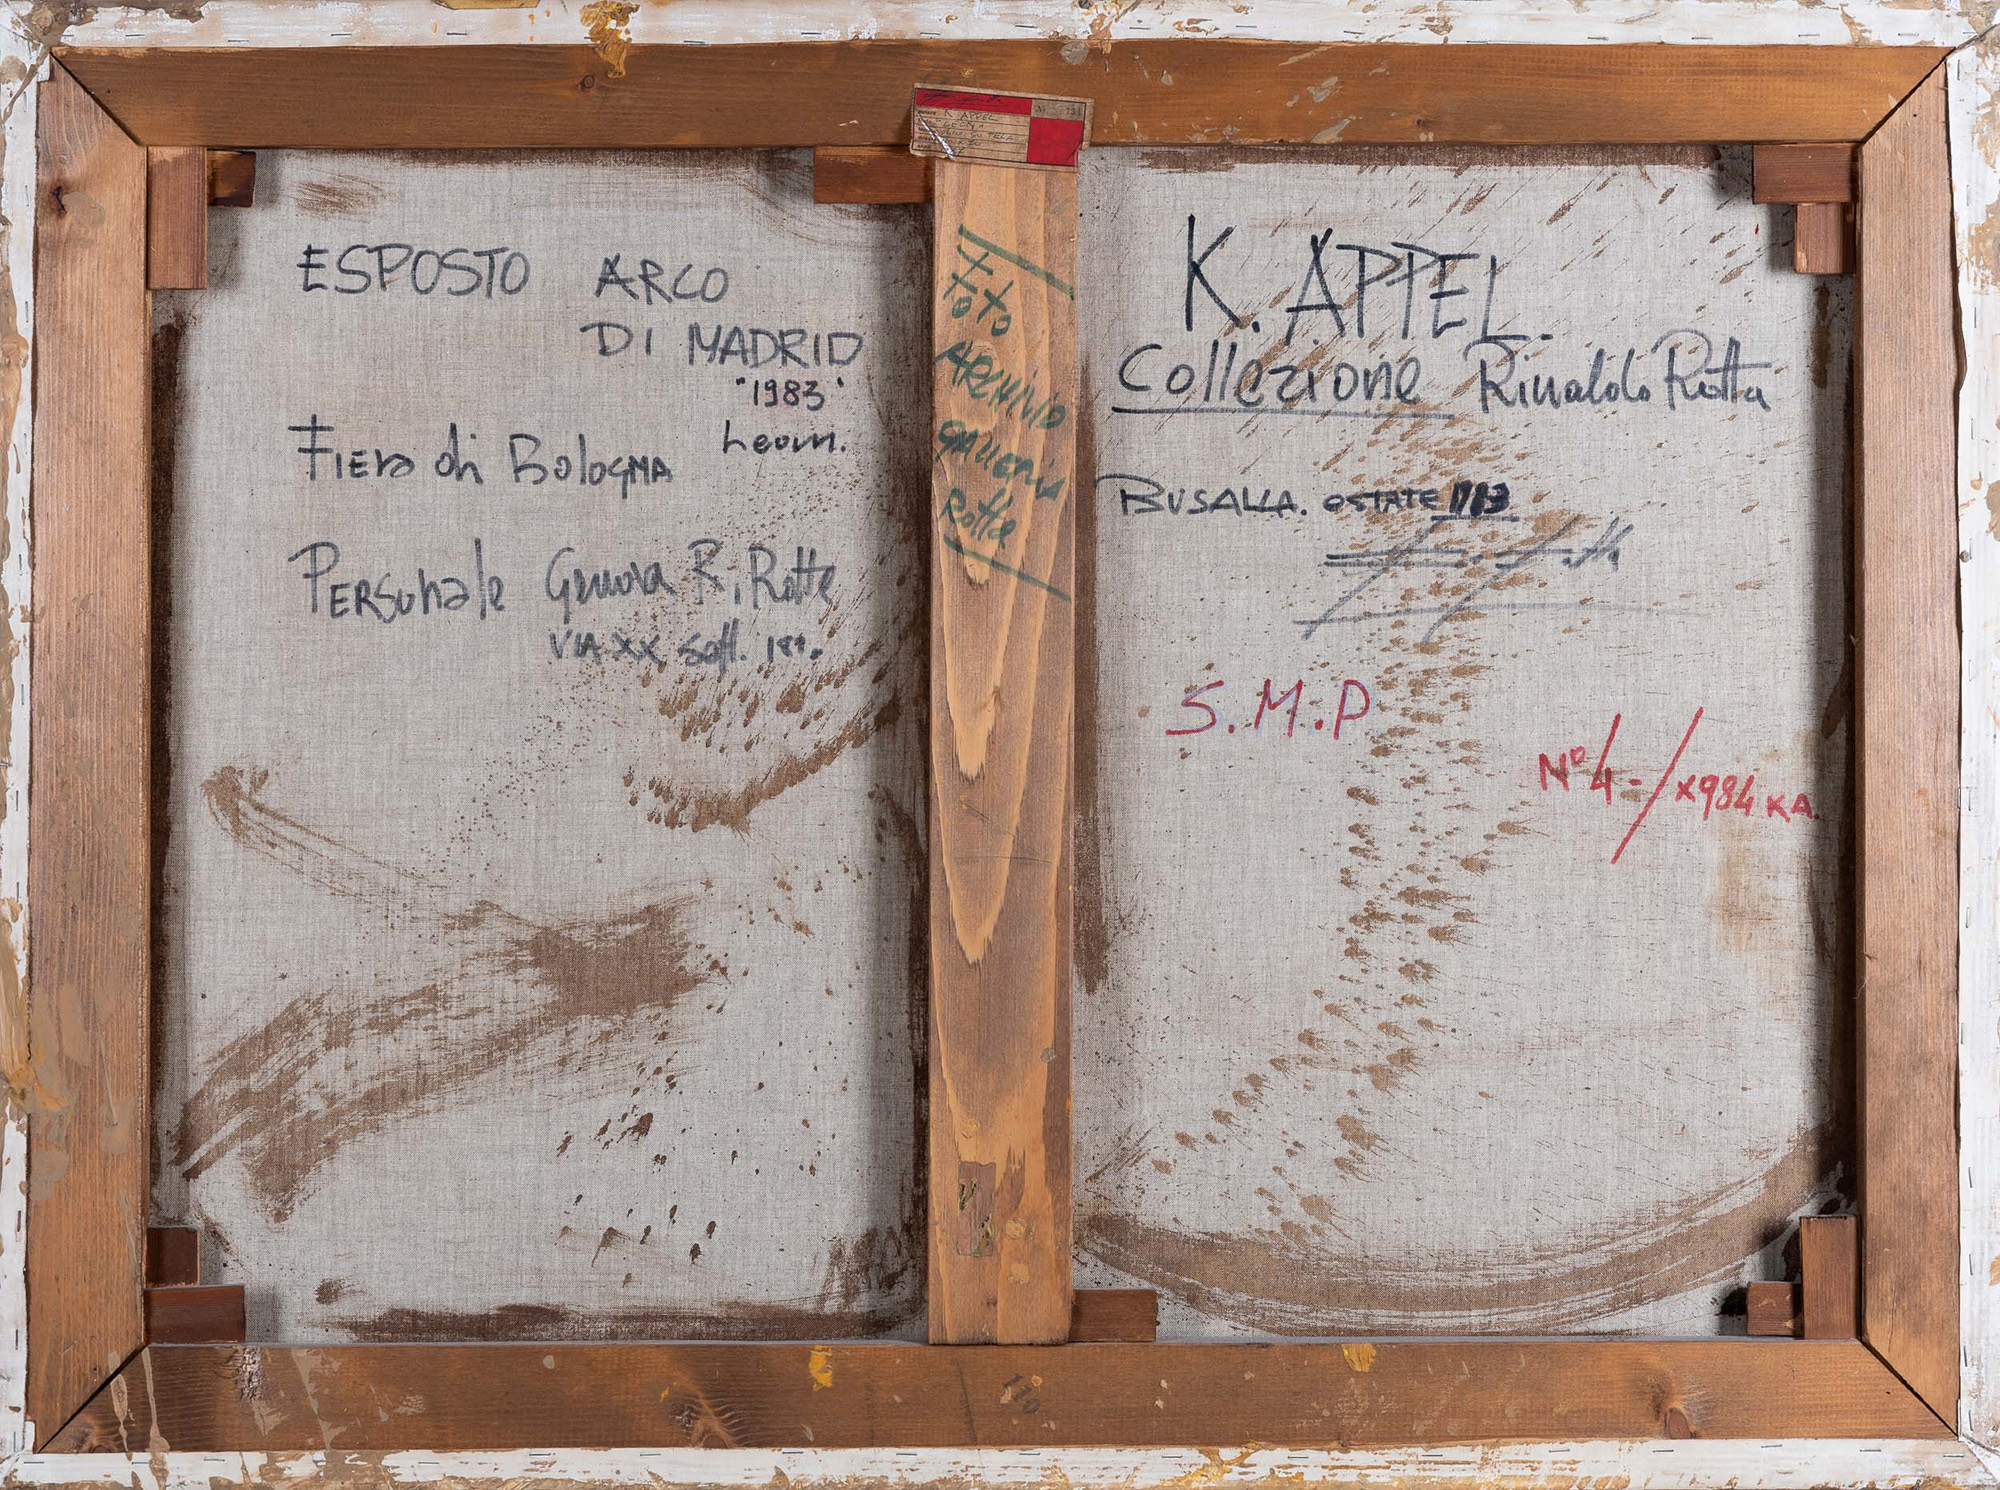 ESPOSTO ARCO
DI MADRID
"1983"
Leoni.
FIERA di BOLOGNA
PERSONALE Genova R. Rotta
VIA XX Sett. 181.
FOTO
ARCHIVIO
GALLERIA
Rotta
K. APPEL
LEONI
SU TELA
K. APPEL.
Collezione Rinaldo Rotta
BUSALLA. ESTATE 1983
S.M.P
N° 4 - / X984 KA.
110